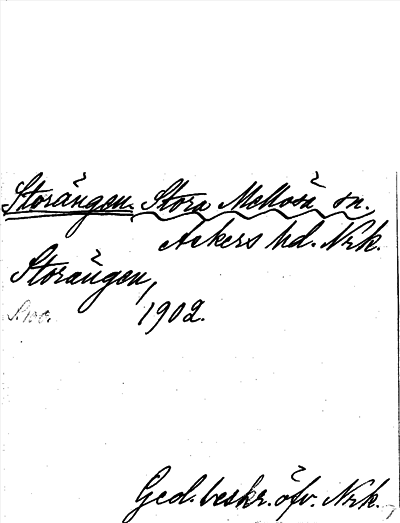 Storängen. Stora Mellösa sn.
Askers hd. Nrk.
Storängen,
1902.
S. 100.
Ged. beskr. öfv. Nrk.